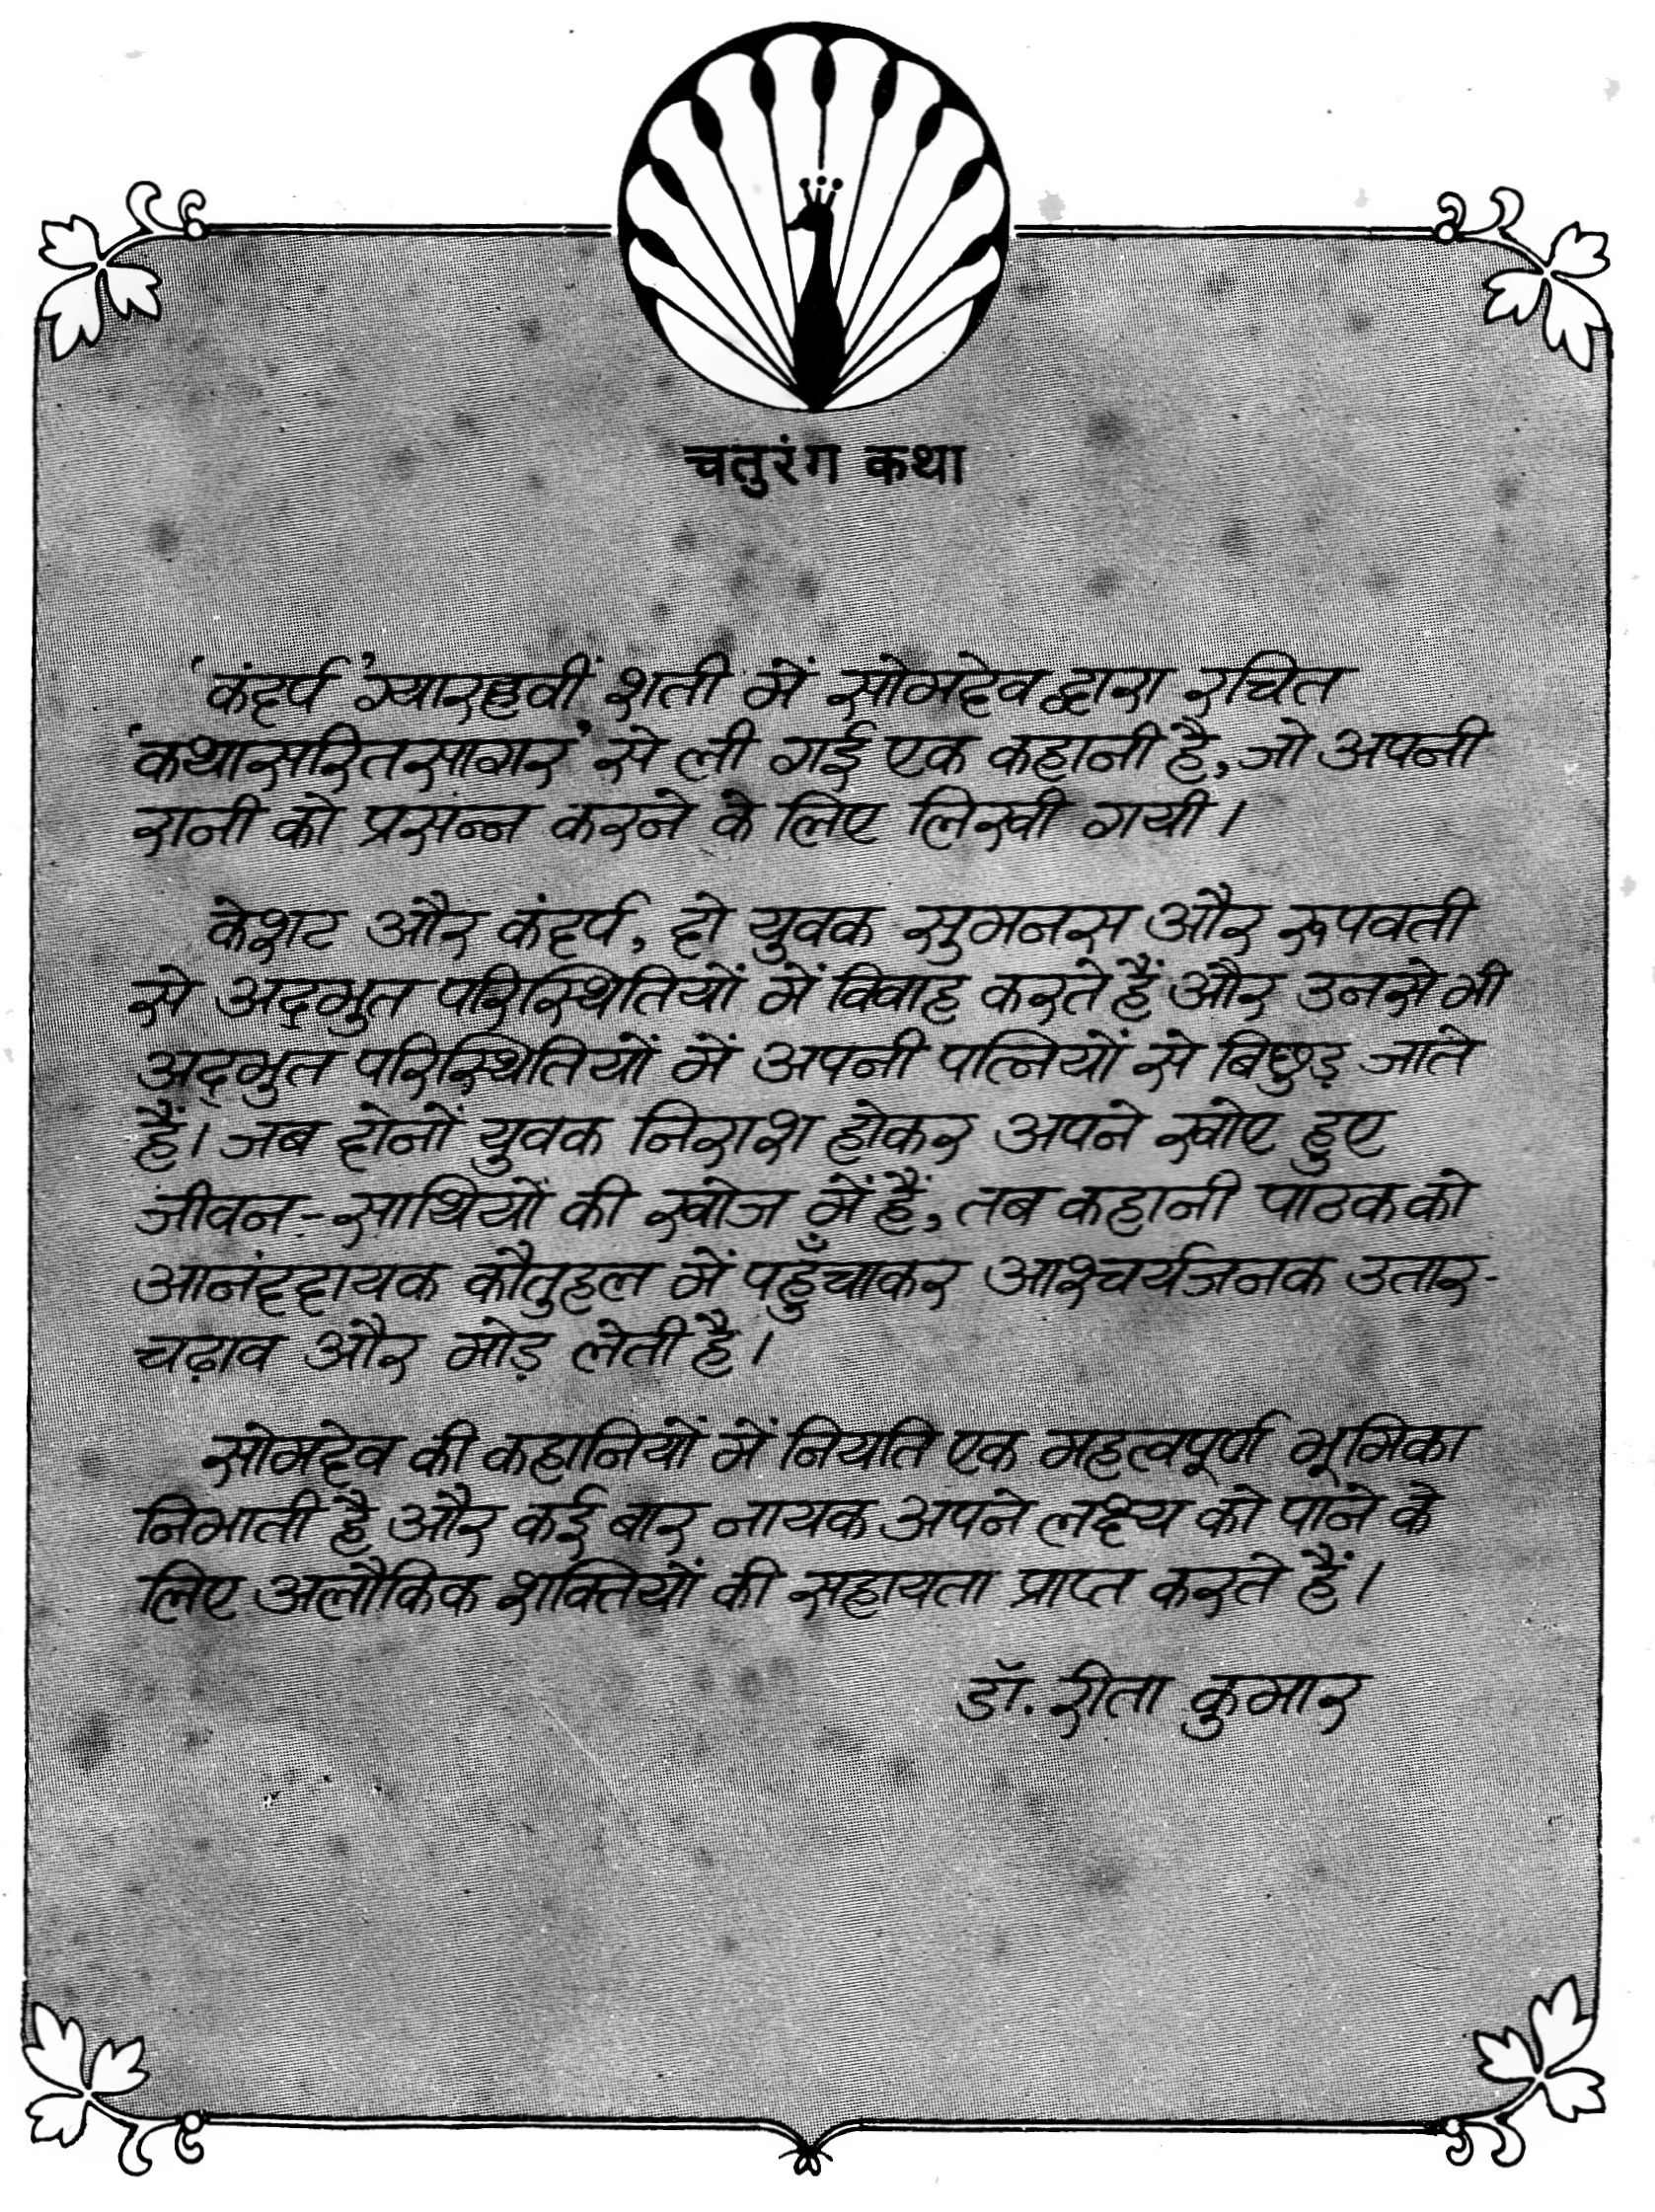 चतुरंग कथा
'कंदर्प' ग्यारहवीं शती में सोमदेव द्वारा रचित
'कथासरितसागर' से ली गई एक कहानी है, जो अपनी
रानी को प्रसन्न करने के लिए लिखी गयी।
केशट और कंदर्प, दो युवक सुमनस और रूपवती
से अद्‌भुत परिस्थितियों में विवाह करते हैं और उनसे भी
अद्‌भुत परिस्थितियों में अपनी पत्नियों से बिछुड़ जाते
हैं। जब दोनों युवक निराश होकर अपने खोए हुए
जीवन-साथियों की खोज में हैं, तब कहानी पाठक को
आनंददायक कौतुहल में पहुँचाकर आश्चर्यजनक उतार-
चढ़ाव और मोड़ लेती है।
सोमदेव की कहानियों में नियति एक महत्वपूर्ण भूमिका
निभाती है और कई बार नायक अपने लक्ष्य को पाने के
लिए अलौकिक शक्तियों की सहायता प्राप्त करते हैं।
डॉ. रीता कुमार